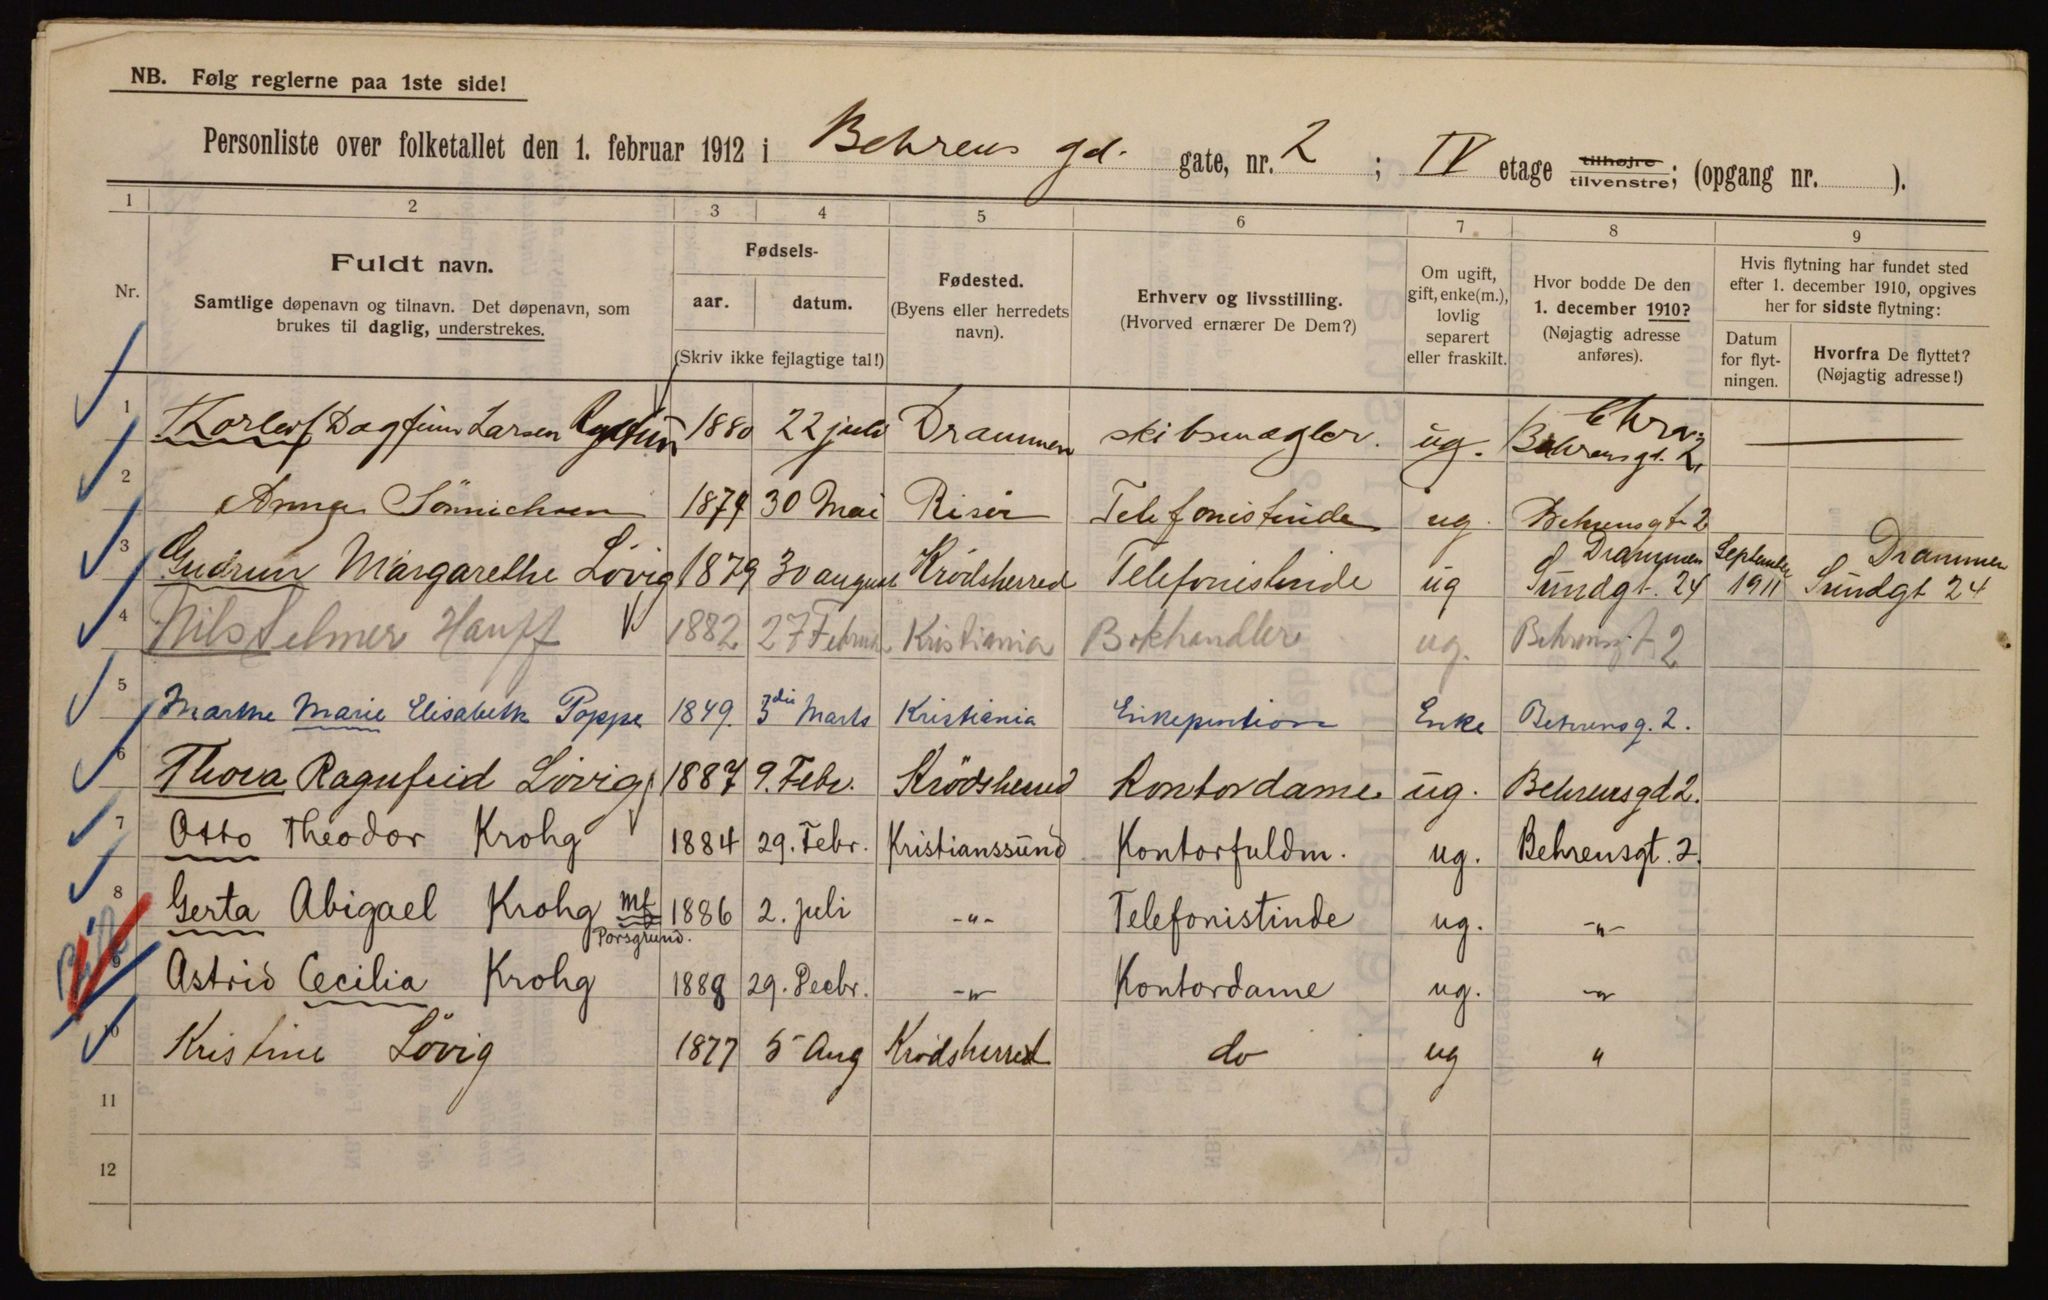 NB. Følg reglerne paa 1ste side!
Personliste over folketallet den 1. februar 1912 i Behrens gd. gate, nr. 2 ; IV etage tilhøjre tilvenstre; (opgang nr. ).
1 2 3 4 5 6 7 8 9
Nr.
Fuldt navn.
Samtlige døpenavn og tilnavn. Det døpenavn, som
brukes til daglig, understrekes.
Fødsels-
aar. datum.
(Skriv ikke fejlagtige tal!)
Fødested.
(Byens eller herredets
navn).
Erhverv og livsstilling.
(Hvorved ernærer De Dem?)
Om ugift,
gift, enke(m.),
lovlig
separert
eller fraskilt.
Hvor bodde De den
1. december 1910?
(Nøjagtig adresse
anføres).
Hvis flytning har fundet sted
efter 1. december 1910, opgives
her for sidste flytning:
Datum
for flyt-
ningen.
Hvorfra De flyttet?
(Nøjagtig adresse!)
1 Thorleif Dagfinn Larsen 1880 22 juli Drammen skibsmægler. ug. Chra. Behrensgd. 2
2 Sönnichsen 1874 30 Mai Risör Telefonistinde ug. Behrensgt 2
3 Gudrun Margarethe Lövig 1879 30 august Krödsherred Telefonistinde ug Drammen Sundgt. 24 September 1911 Drammen Sundgt 24
4 Nils Selmer Hauff 1882 27 Februar Kristiania Bokhandler ug. Behrensgt 2
5 Marthe Marie Elisabeth Poppe 1849. 3die Marts Kristiania Enkepention Enke Behrensg. 2.
6 Thora Ragnfrid Lövig 1887 9. Febr. Krödsherred Kontordame ug. Behrensgd 2.
7 Otto Theodor Krohg 1884 29. Febr. Kristianssund Kontorfuldm. ug. Behrensgt. 2.
8 Gerta Abigael Krohg Mf 1886 2. juli -"- Telefonistinde ug. -"-
Porsgrund.
9 Astrid Cecilia Krohg 1888 29. Decbr. -"- Kontordame ug. -"-
10 Kristine Lövig 1877 5 Aug Krödsherred do ug "
11
12